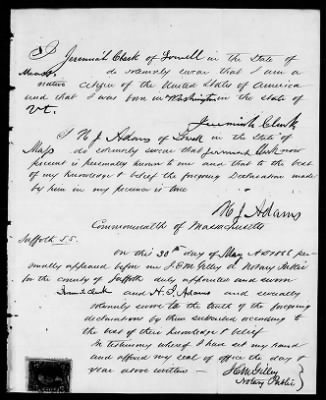 I Jeremiah Clark of Lowell in the State of
Mass. do solemnly swear that I am a
native citizen of the United States of America
and that I was born in Washington in the state of
Vt.
Jeremiah Clark
I H J Adams of in the State of
Mass do solemnly swear that Jeremiah Clark now
present is personally known to me and that to the best
of my knowledge & belief the foregoing Declaration made
by him in my presence is true
H J Adams
Commonwealth of Massachusetts
Suffolk S.S.
On this 30th day of May AD 1866 per-
sonally appeared before me J E M Gilley a Notary Public
for the County of Suffolk duly appointed and sworn
Clark and H. J. Adams and severally
solemnly swore to the truth of the foregoing
declarations by them subscribed according to
the best of their knowledge & belief
In testimony whereof I had set my hand
and affixed my seal of office the day &
year above written —
J E M Gilley
Notary Public